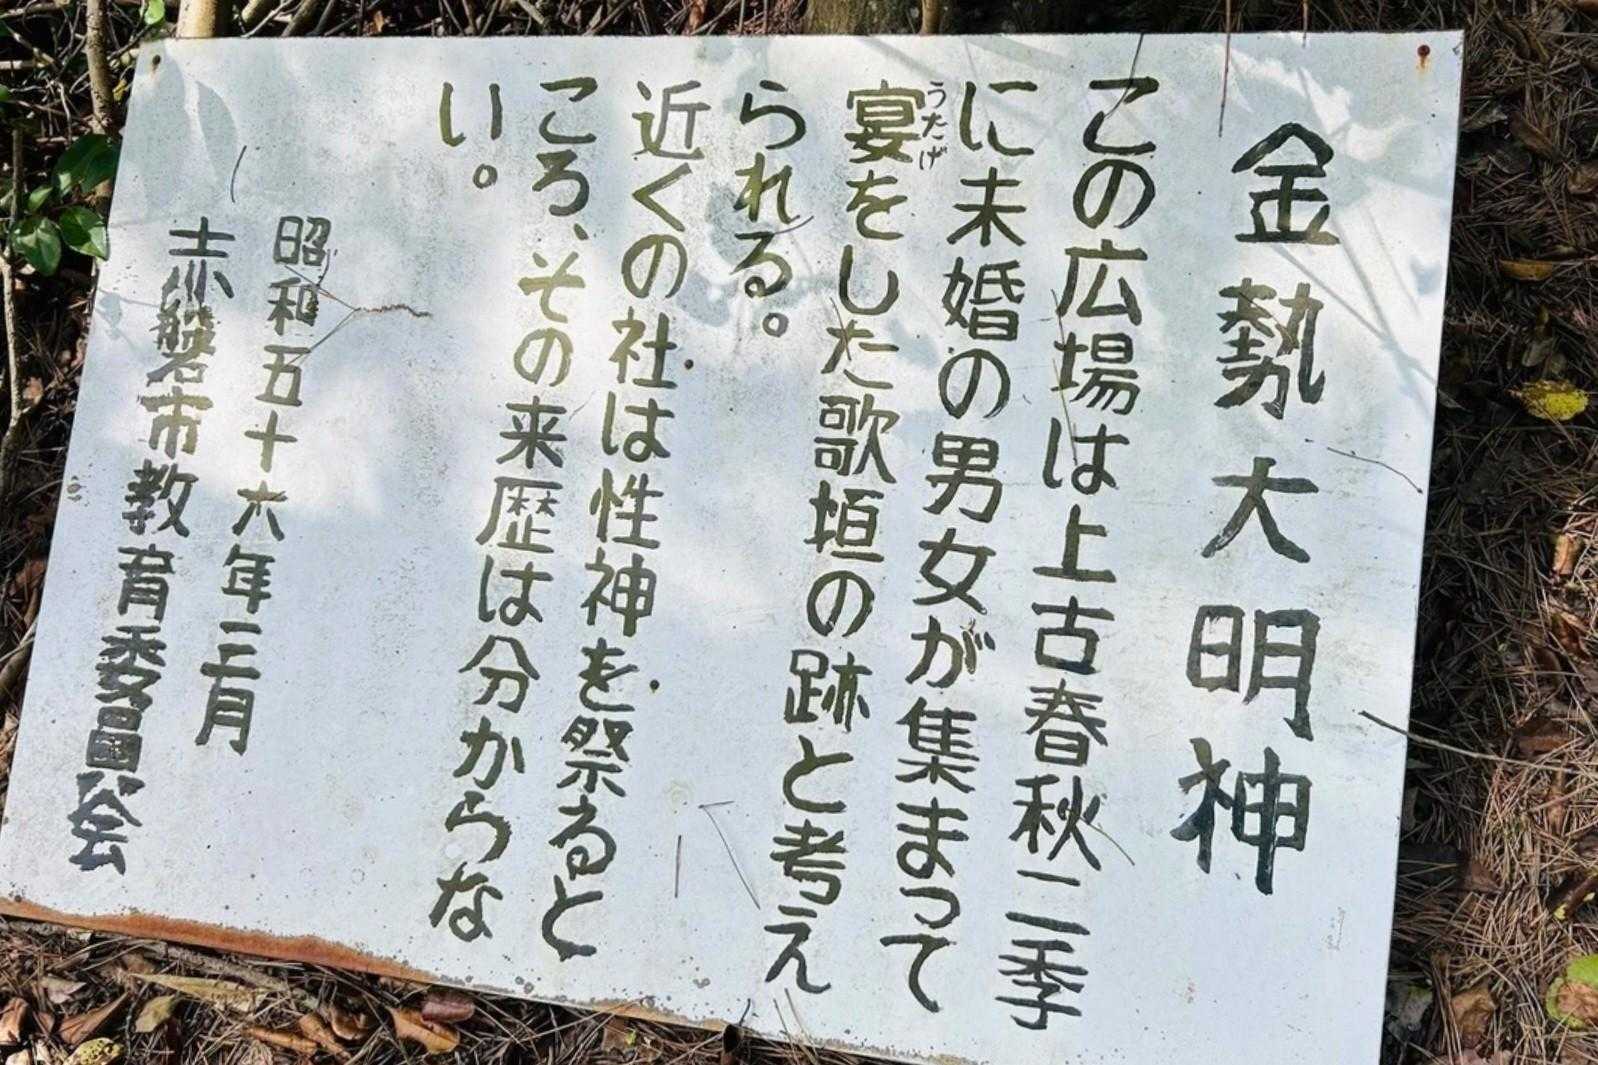 金勢大明神
この広場は上古春秋二季
に未婚の男女が集まって
宴をした歌垣の跡と考え
うたげ
られる。
近くの社は性神を祭ると
ころ、その来歴は分からな
い。
昭和五十六年三月
赤磐市教育委員会